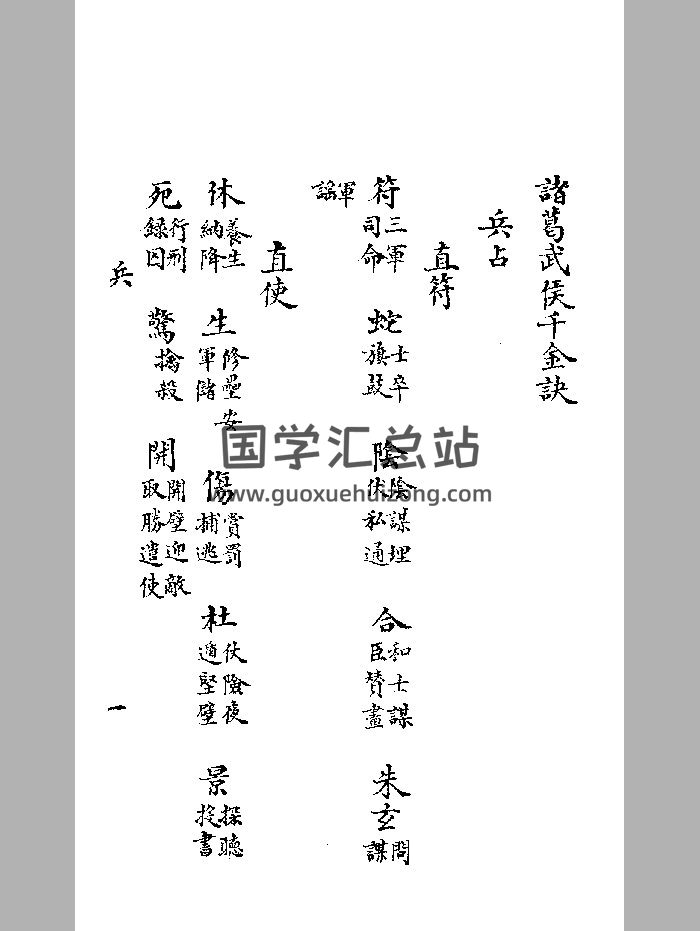 諸葛武侯千金訣
兵占
直符
符 三軍司命 蛇 士卒旗鼓 陰 陰謀埋伏私通 合 和士謀臣贊畫 朱玄 間謀
軍謡
直使
休 養生納降 生 修壘安軍儲 傷 賞罰捕逃 杜 伏險夜遁堅壁 景 探聽投書
死 行刑録囚 驚 擒殺 開 開壁迎敵取勝遣使
兵 一
国学汇总站
www.guoxuehuizong.com